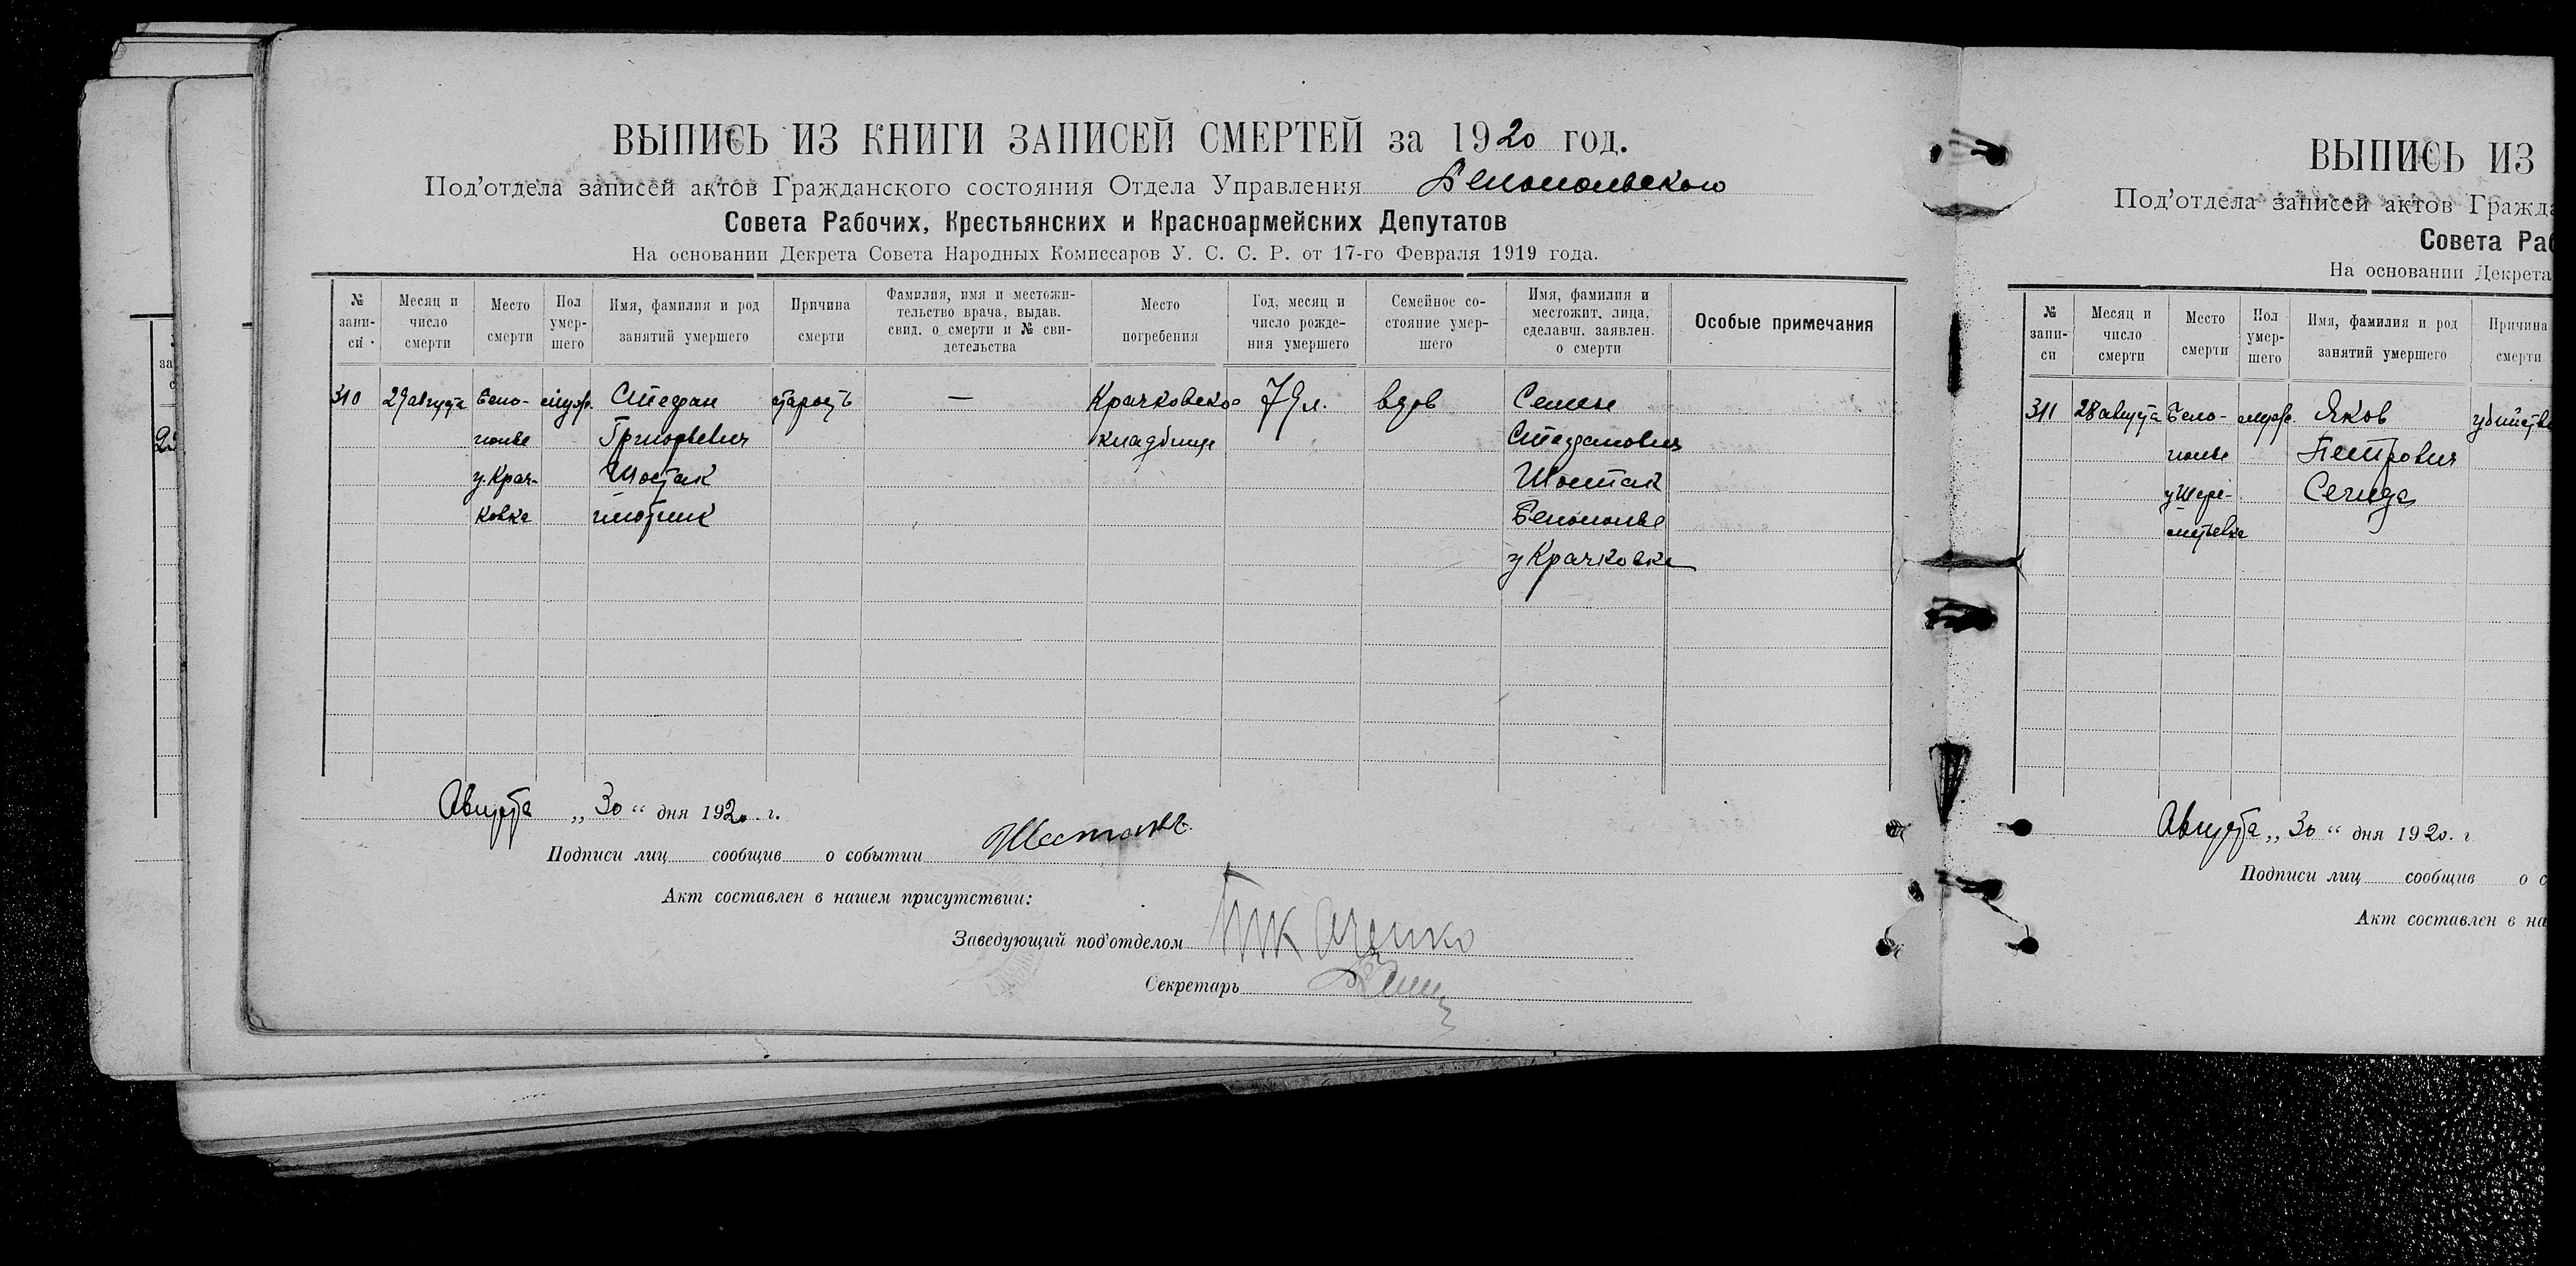 ВЫПИСЬ ИЗ КНИГИ ЗАПИСЕЙ СМЕРТЕЙ за 1920 год.
Под'отдела записей актов Гражданского состояния Отдела Управления Белопольского
Совета Рабочих, Крестьянских и Красноармейских Депутатов
На основании Декрета Совета Народных Комиссаров У. С. С. Р. от 17-го Февраля 1919 года.
№ запи- си
Месяц и число смерти
Место смерти
Пол умер- шего
Имя, фамилия и род занятий умершего
Причина смерти
Фамилия, имя и местожи- тельство врача, выдав. свид. о смерти и № сви- детельства
Место погребения
Год, месяц и число рожде- ния умершего
Семейное со- стояние умер- шего
Имя, фамилия и местожит. лица, сделавш. заявлен. о смерти
Особые примечания
310 29 августа Бело- муж. Стефан старость — Крачковское 79 л. вдов Семен
полье Григорьевич кладбище Стефанович
у. Крач- Шостак Шостак
ковка плотник Белополье
у Крачковка
Августа „30“ дня 1920 г.
Подписи лиц сообщив о событии Шостак
Акт составлен в нашем присутствии:
Заведующий под'отделом Ткаченко
Секретарь
ВЫПИСЬ ИЗ
Под'отдела записей актов Гражда
Совета Раб
На основании Декрета
№ запи- си
Месяц и число смерти
Место смерти
Пол умер- шего
Имя, фамилия и род занятий умершего
Причина смерти
311 28 августа Бело- муж. Яков убийств
полье Петрович
у Шере- Сечида
метьевка
Августа „30“ дня 1920 г
Подписи лиц сообщив о с
Акт составлен в на